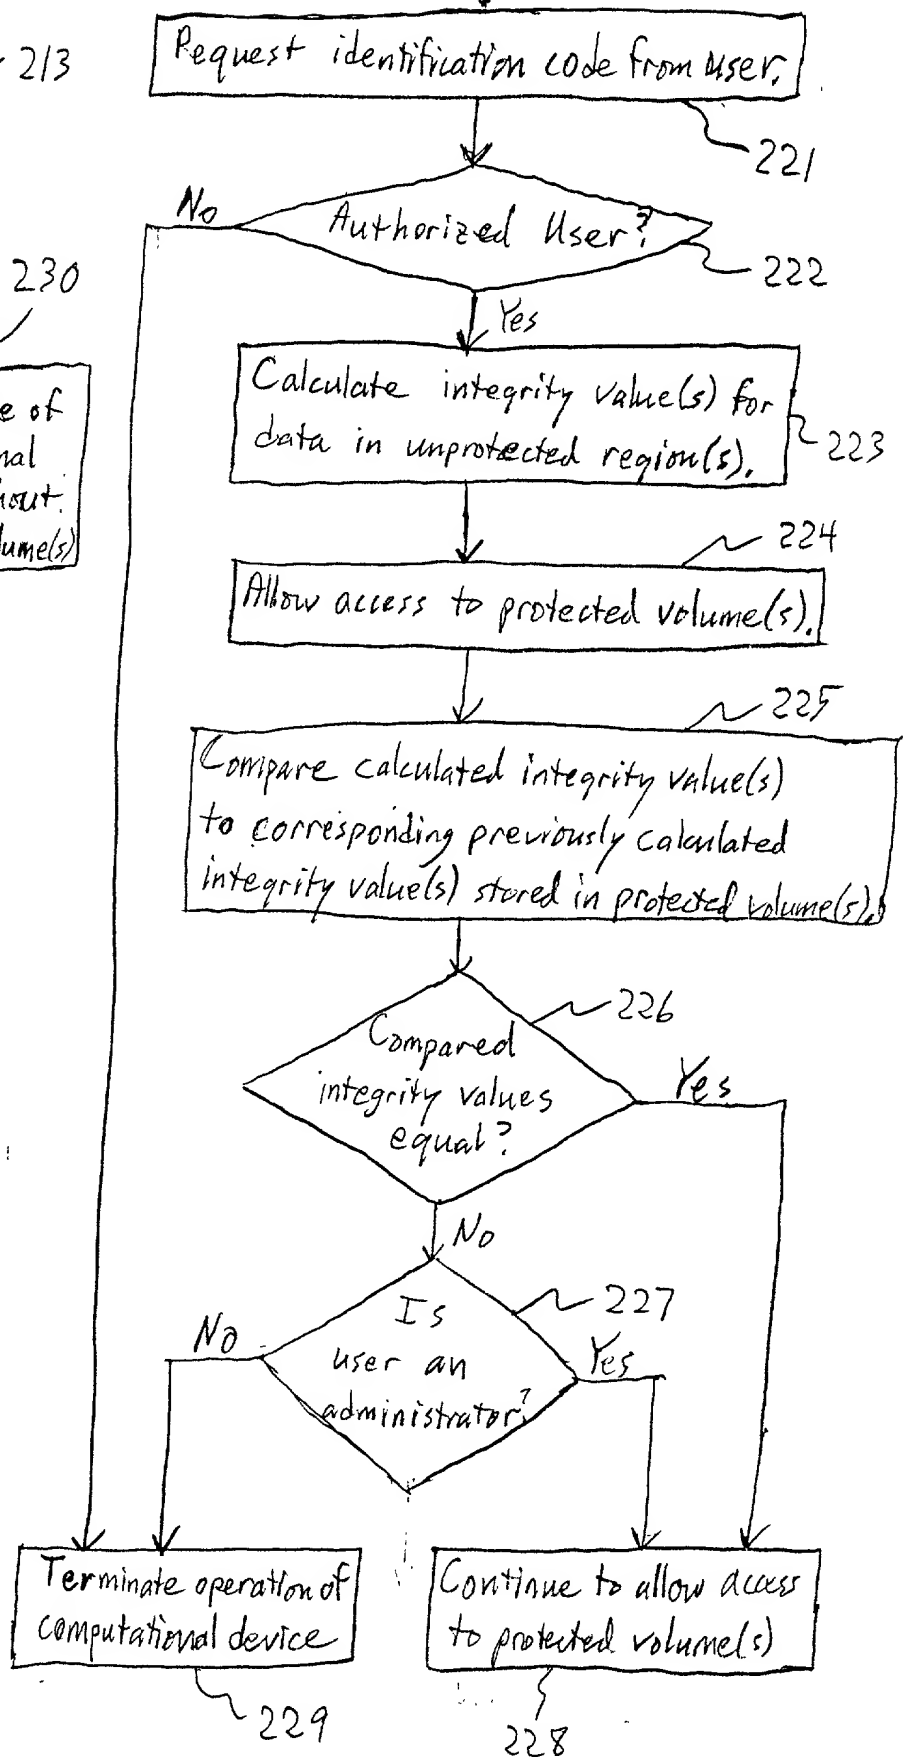 213
Request identification code from user.
221
Authorized User?
No
222
230
Yes
Calculate integrity value(s) for
data in unprotected region(s).
223
e of
nal
hout
lume(s)
224
Allow access to protected volume(s).
225
Compare calculated integrity value(s)
to corresponding previously calculated
integrity value(s) stored in protected volume(s).
226
Compared
integrity values
equal?
Yes
No
227
Is
user an
administrator?
No
Yes
Terminate operation of
computational device
229
Continue to allow access
to protected volume(s)
228